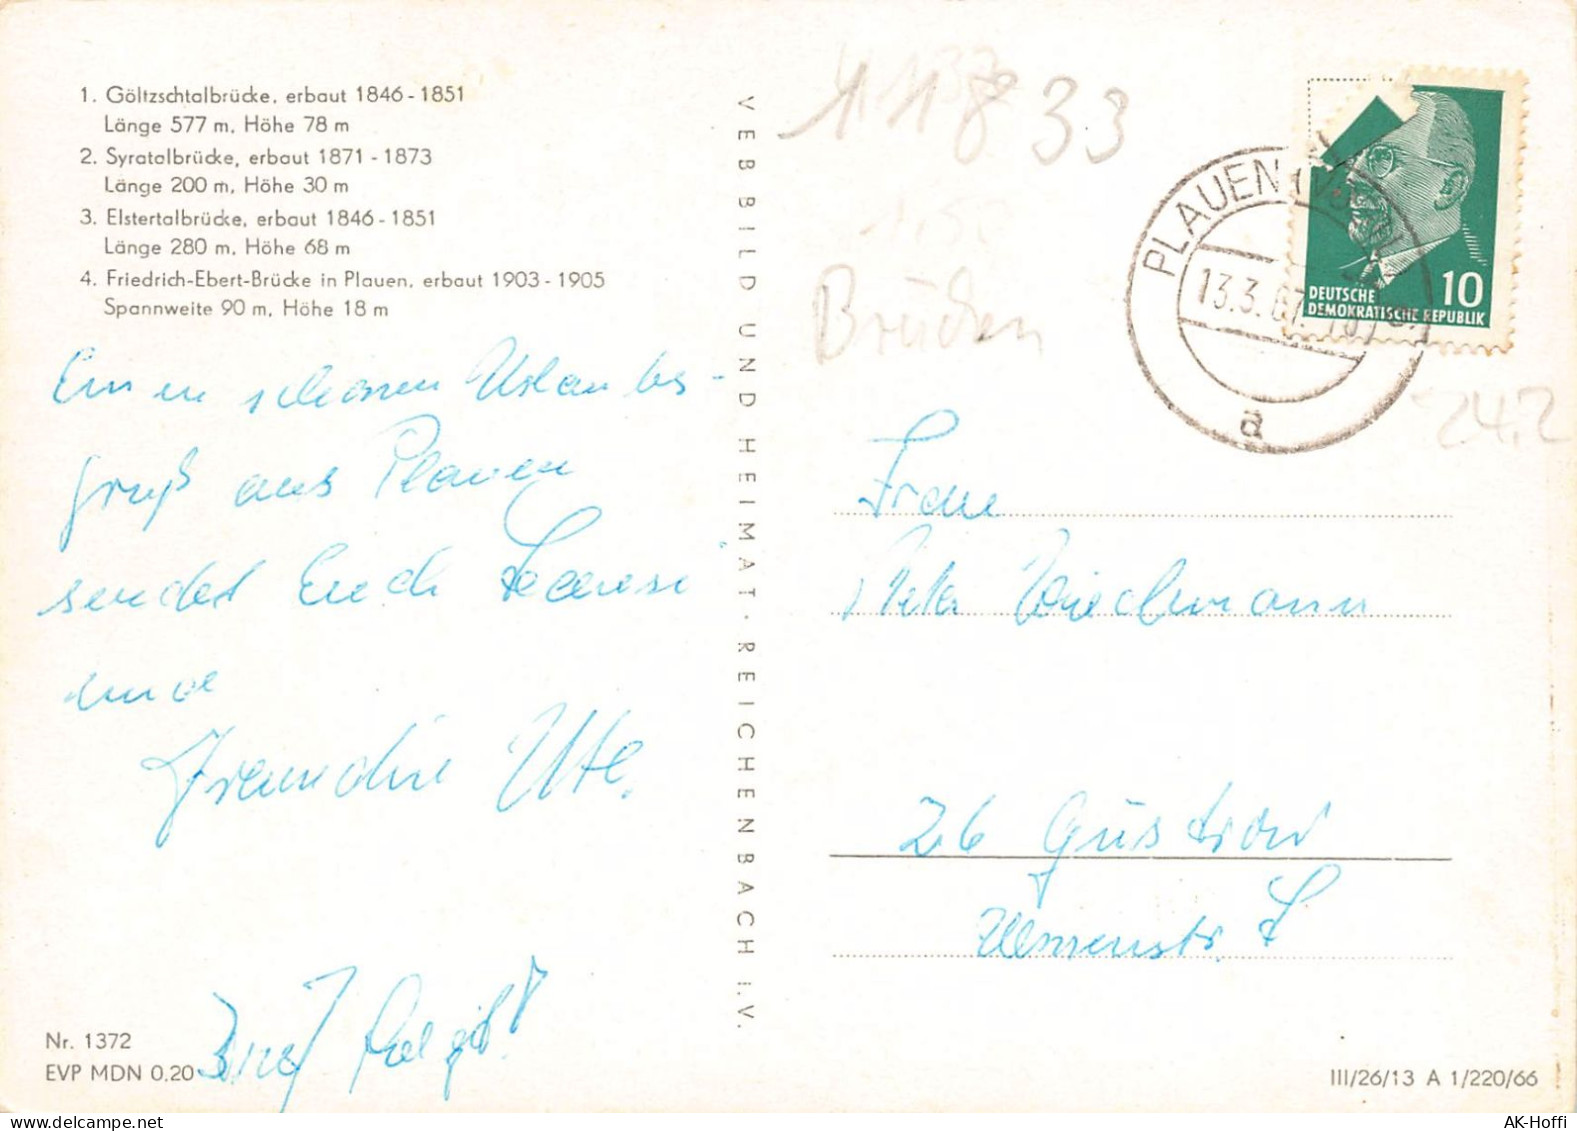 1. Göltzschtalbrücke, erbaut 1846-1851
Länge 577 m, Höhe 78 m
2. Syratalbrücke, erbaut 1871-1873
Länge 200 m, Höhe 30 m
3. Elstertalbrücke, erbaut 1846-1851
Länge 280 m, Höhe 68 m
4. Friedrich-Ebert-Brücke in Plauen, erbaut 1903-1905
Spannweite 90 m, Höhe 18 m
Einen schönen Urlaubs-
gruß aus Plauen
sendet Euch
und
Freundin Ute.
Brief folgt!
Nr. 1372
EVP MDN 0,20
VEB BILD UND HEIMAT · REICHENBACH I. V.
33
Brücken
PLAUEN (VOGTL)
13.3.67
a
10
DEUTSCHE
DEMOKRATISCHE REPUBLIK
24.2
Frau
Wiechmann
26 Güstrow
Ulmenstr.
III/26/13 A 1/220/66
AK-Hoffi